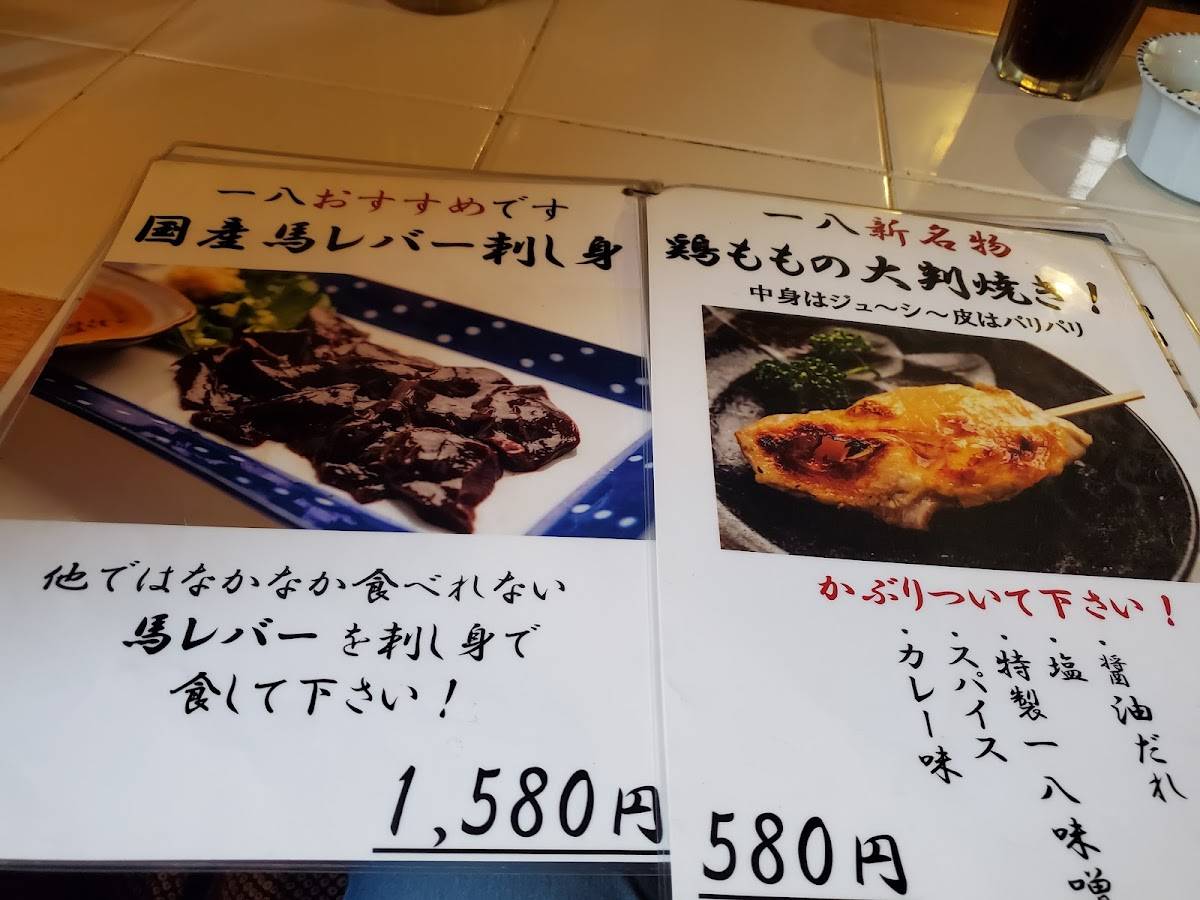 一八おすすめです
国産馬レバー刺し身
他ではなかなか食べれない
馬レバーを刺し身で
食して下さい！
1,580円
一八新名物
鶏ももの大判焼き！
中身はジュ～シ～皮はパリパリ
かぶりついて下さい！
・醤油だれ
・塩
・特製一八味噌
・スパイス
・カレー味
580円